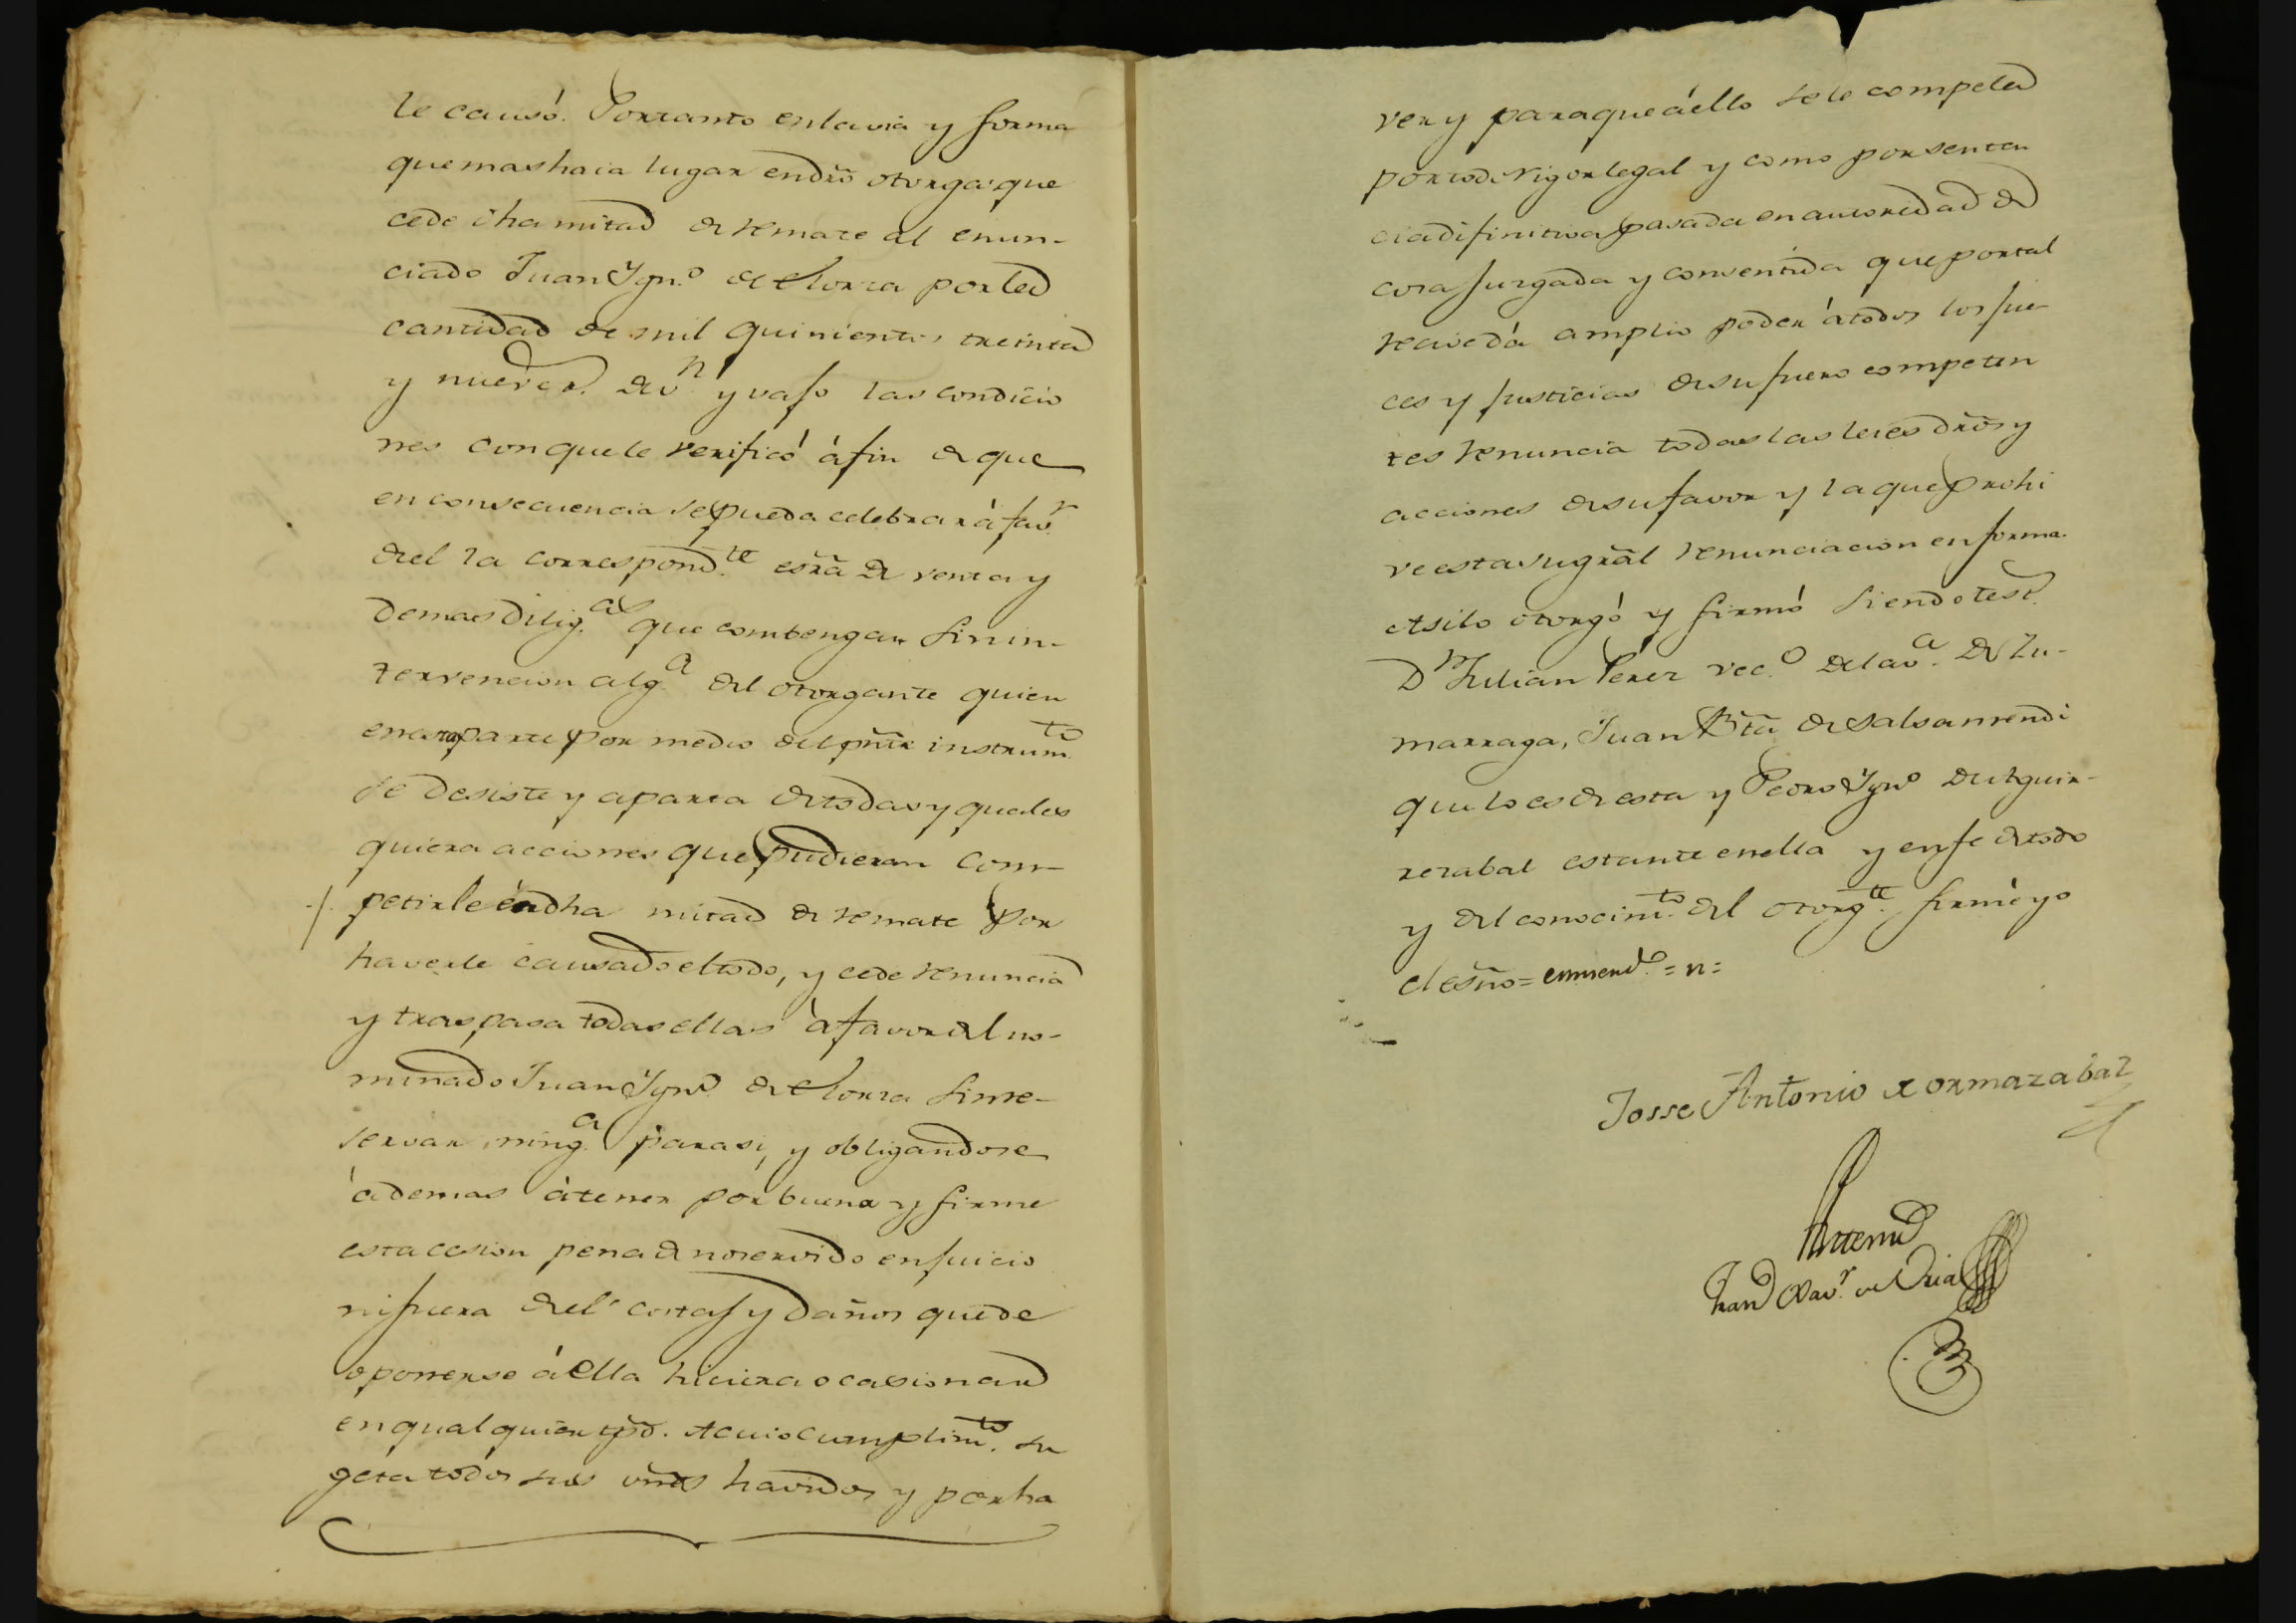 le causó. Portanto en la via y forma
que mas haia lugar en dr̃o otorga: que
cede dha mitad de remate al enun-
ciado Juan Ygn.º de Elorza por la
cantidad de mil quinientos treinta
y nueve r.s de v.n y vajo las condicio
nes con que le verificó á fin de que
en consecuencia se pueda celebrar á fav.r
de el la correspond.te esr̃a de venta y
demas dilig.as que combengan sin in-
tervencion alg.a del otorgante quien
en esta parte por medio del pñte instrum.to
se desiste y aparta de todas y quales
quiera acciones que pudieran com-
petirle en dha mitad de remate por
haverle causado el todo, y cede renuncia
y traspasa todas ellas á favor del no-
minado Juan Ygn.º de Elorza sin re-
servar ning.a para si, y obligandose
ademas á tener por buena y firme
esta cesion pena de no ser oido en juicio
ni fuera de el costas y daños que de
oponerse á ella hiciera ocasionar
en qualquier tpõ. A cuio cumplim.to su
geta todos sus vñes havidos y por ha
ver y para que á ello se le compela
por todo rigor legal y como por senten
cia difinitiva pasada en autoridad de
cosa juzgada y consentida que por tal
reciveda amplio poder á todos los jue
ces y justicias de su fuero competen
tes renuncia todas las leies dr̃os y
acciones de su favor y la que prohi
ve esta su gr̃al renunciacion en forma.
Asi lo otorgó y firmó siendo tes.s
D.n Julian Perez vec.º de la v.a de Zu-
marraga, Juan Bta de Salsamendi
que lo es de esta y Pedro Ygn.º de Aguir-
rezabal estante en ella y en fe de todo
y del conocim.to del otorg.te firmé yo
el esño = enmend.º = n =
Josse Antonio de ormazabal
Antemi
Fran.co Xav.r de Oria